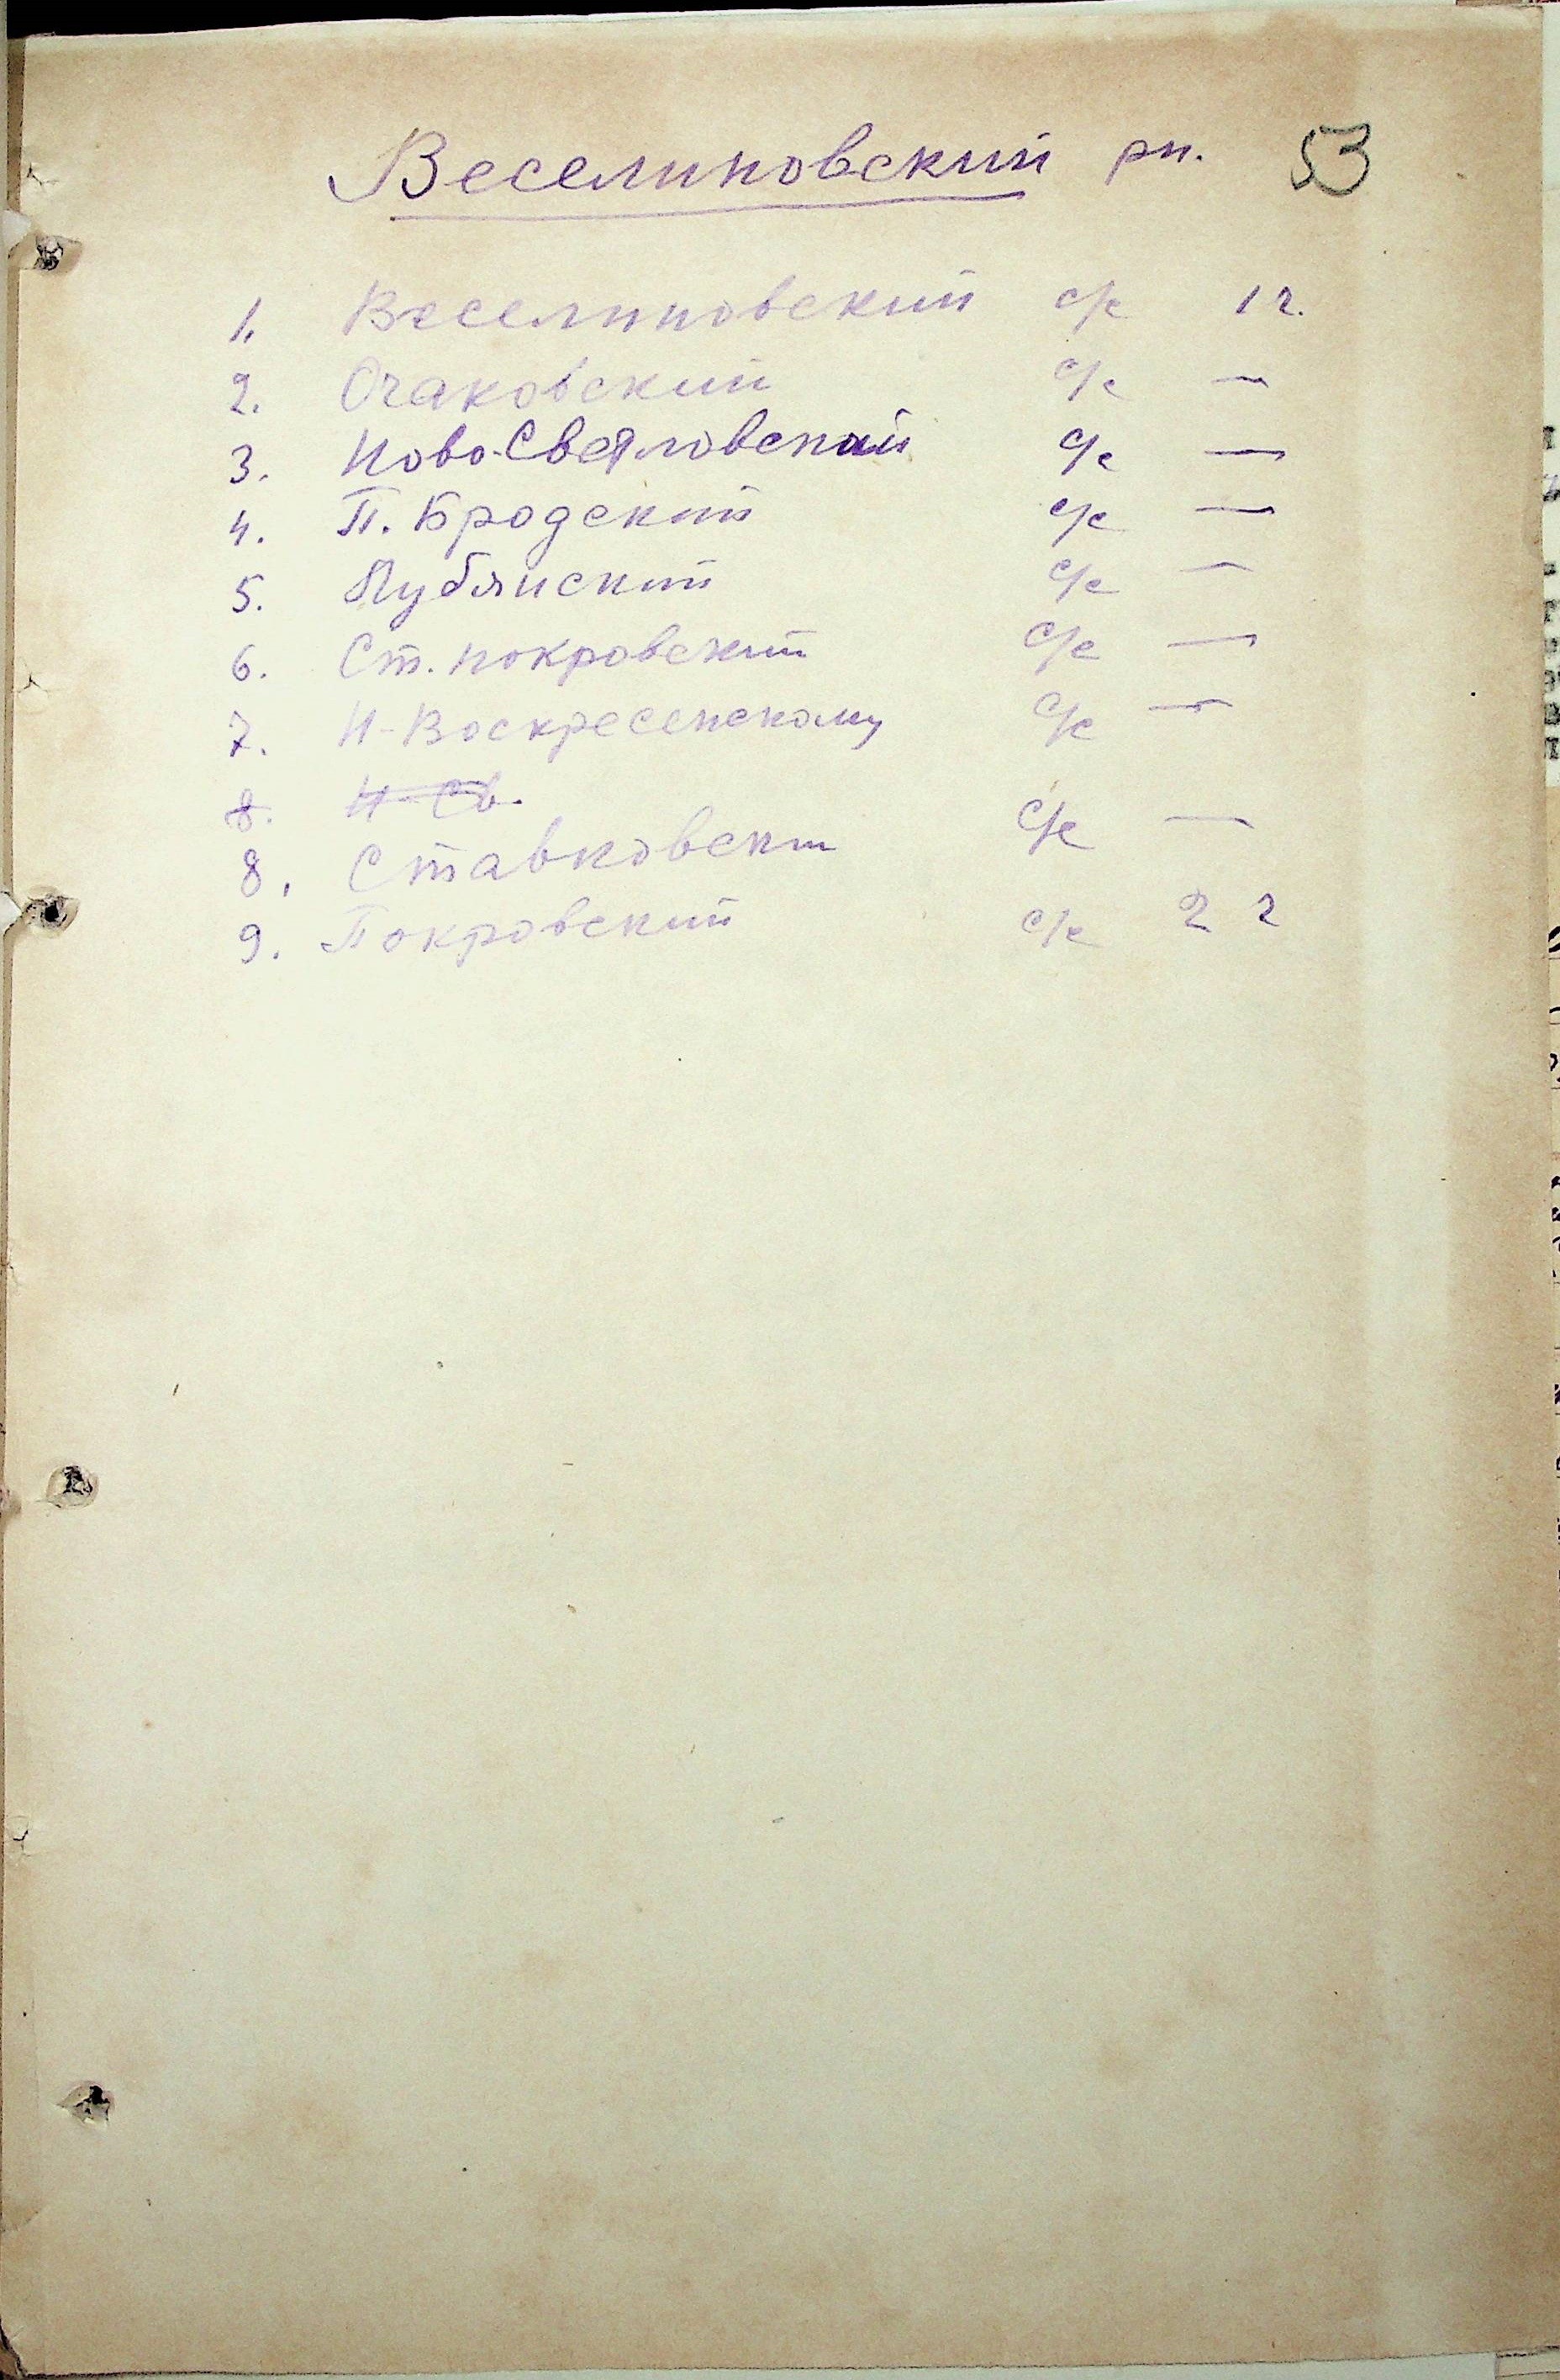 Веселиновский рн. 53
1. Веселиновский с/с 1 2.
2. Очаковский с/с —
3. Ново-Светловский с/с —
4. П. Бродский с/с —
5. Лублиский с/с —
6. Ст. покровский с/с —
7. Н-Воскресенскому с/с —
8. Н-Св.
8. Ставковски с/с —
9. Покровский с/с 2 2